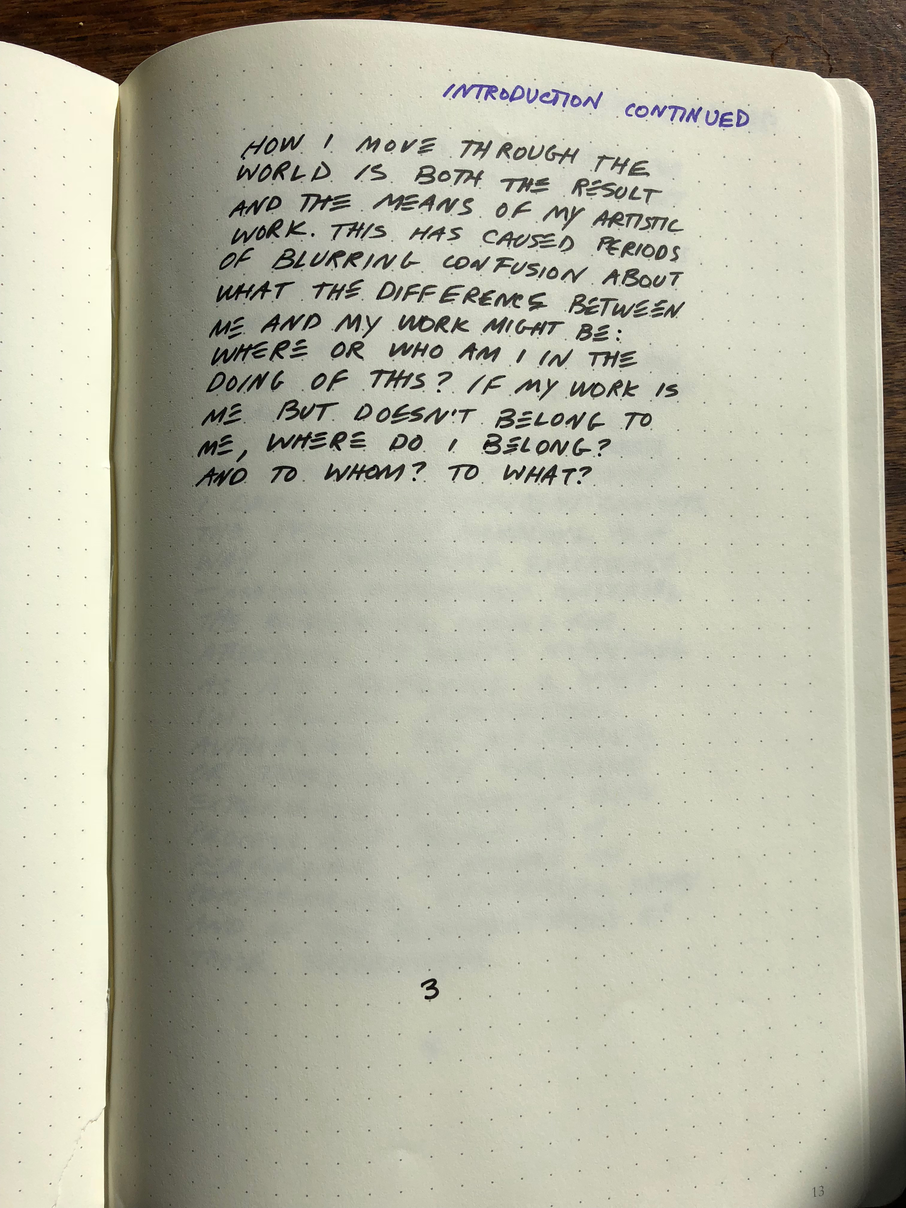 INTRODUCTION CONTINUED
HOW I MOVE THROUGH THE
WORLD IS BOTH THE RESULT
AND THE MEANS OF MY ARTISTIC
WORK. THIS HAS CAUSED PERIODS
OF BLURRING CONFUSION ABOUT
WHAT THE DIFFERENCE BETWEEN
ME AND MY WORK MIGHT BE:
WHERE OR WHO AM I IN THE
DOING OF THIS? IF MY WORK IS
ME BUT DOESN'T BELONG TO
ME, WHERE DO I BELONG?
AND TO WHOM? TO WHAT?
3
13